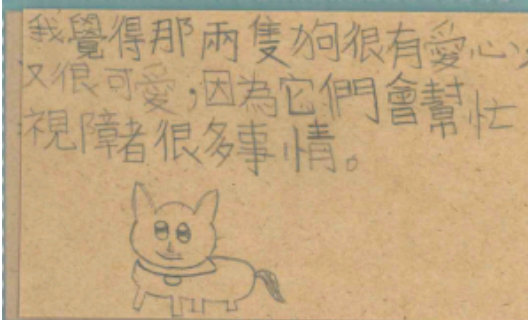 我覺得那兩隻狗很有愛心,
又很可愛,因為它們會幫忙
視障者很多事情。